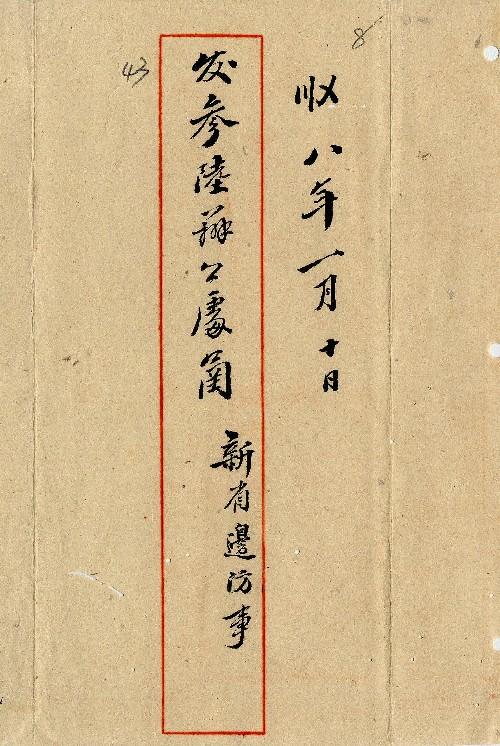 8
收八年一月十日
发参陸辦公處函
新省邊防事
43